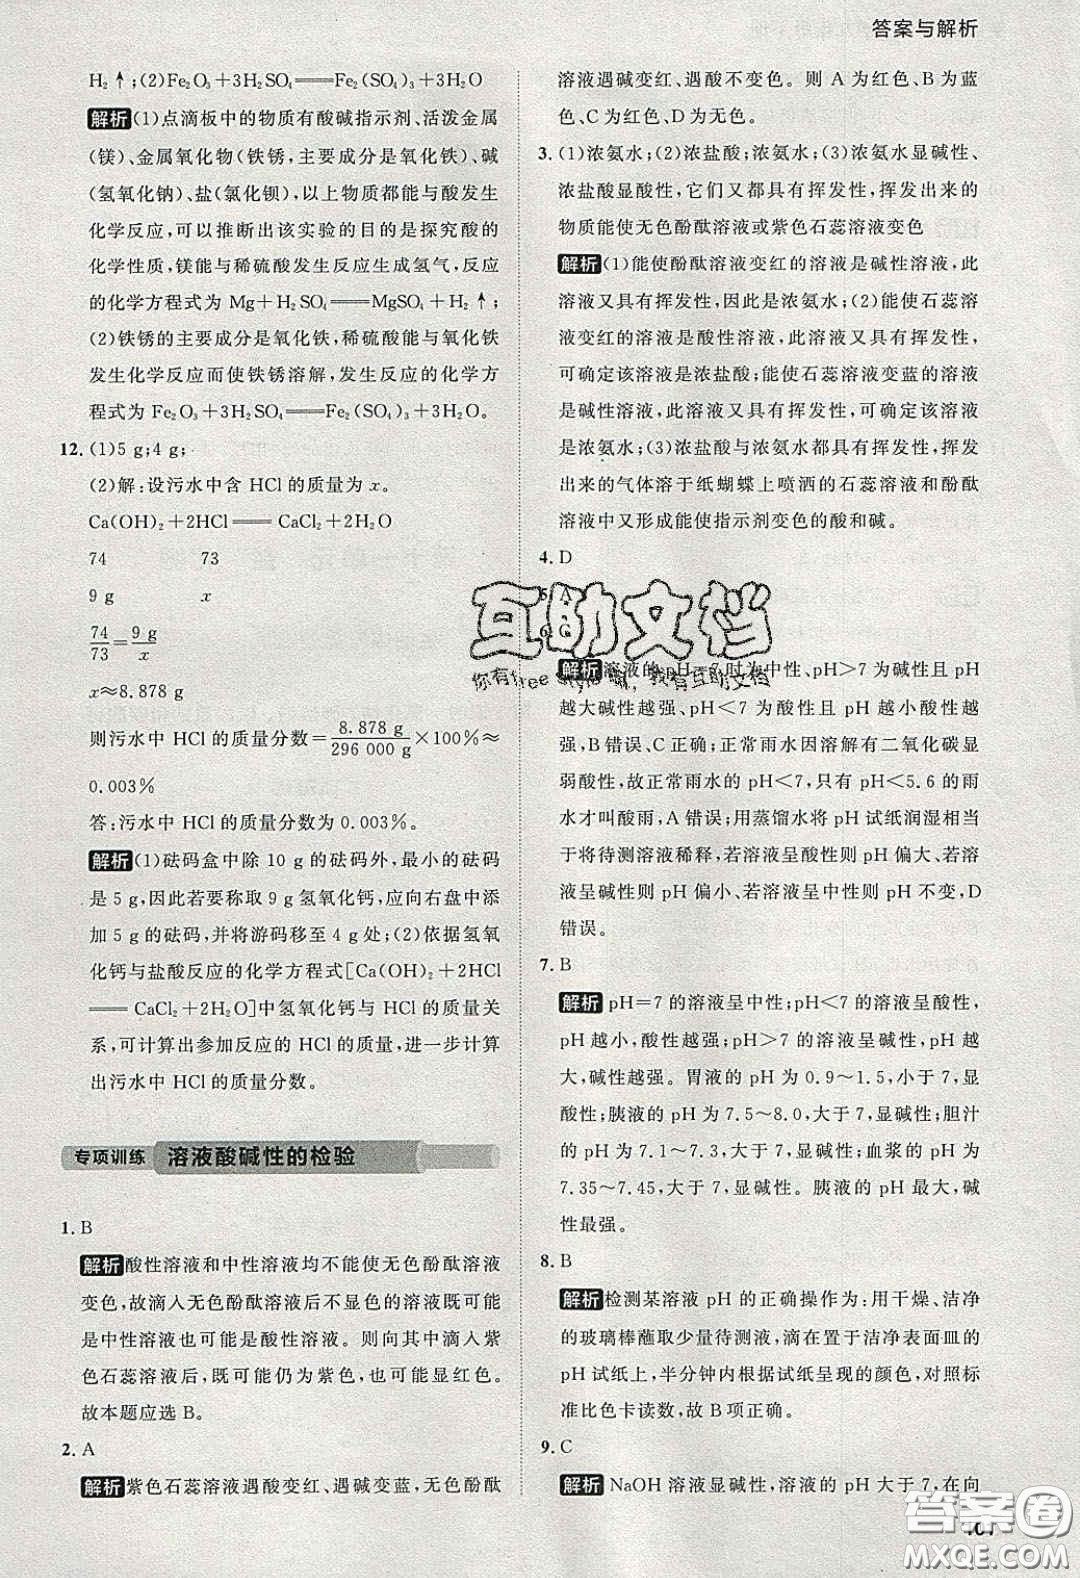 答案与解析
H₂↑;(2)Fe₂O₃+3H₂SO₄══Fe₂(SO₄)₃+3H₂O
解析(1)点滴板中的物质有酸碱指示剂、活泼金属
(镁)、金属氧化物(铁锈,主要成分是氧化铁)、碱
(氢氧化钠)、盐(氯化钡),以上物质都能与酸发生
化学反应,可以推断出该实验的目的是探究酸的
化学性质,镁能与稀硫酸发生反应生成氢气,反应
的化学方程式为 Mg+H₂SO₄══MgSO₄+H₂↑;
(2)铁锈的主要成分是氧化铁,稀硫酸能与氧化铁
发生化学反应而使铁锈溶解,发生反应的化学方
程式为 Fe₂O₃+3H₂SO₄══Fe₂(SO₄)₃+3H₂O。
12. (1)5 g;4 g;
(2)解:设污水中含 HCl 的质量为 x。
Ca(OH)₂+2HCl══CaCl₂+2H₂O
74 73
9 g x
74/73=9 g/x
x≈8.878 g
则污水中 HCl 的质量分数=8.878 g/296 000 g×100%≈
0.003%
答:污水中 HCl 的质量分数为 0.003%。
解析(1)砝码盒中除 10 g 的砝码外,最小的砝码
是 5 g,因此若要称取 9 g 氢氧化钙,应向右盘中添
加 5 g 的砝码,并将游码移至 4 g 处;(2)依据氢氧
化钙与盐酸反应的化学方程式[Ca(OH)₂+2HCl
══CaCl₂+2H₂O]中氢氧化钙与 HCl 的质量关
系,可计算出参加反应的 HCl 的质量,进一步计算
出污水中 HCl 的质量分数。
专项训练 溶液酸碱性的检验
1. B
解析酸性溶液和中性溶液均不能使无色酚酞溶液
变色,故滴入无色酚酞溶液后不显色的溶液既可能
是中性溶液也可能是酸性溶液。则向其中滴入紫
色石蕊溶液后,既可能仍为紫色,也可能变为红色。
故本题应选 B。
2. A
解析紫色石蕊溶液遇酸变红、遇碱变蓝,无色酚酞
溶液遇碱变红、遇酸不变色。则 A 为红色、B 为蓝
色、C 为红色、D 为无色。
3. (1)浓氨水;(2)浓盐酸;浓氨水;(3)浓氨水显碱性、
浓盐酸显酸性,它们又都具有挥发性,挥发出来的
物质能使无色酚酞溶液或紫色石蕊溶液变色
解析(1)能使酚酞溶液变红的溶液是碱性溶液,此
溶液又具有挥发性,因此是浓氨水;(2)能使石蕊溶
液变红的溶液是酸性溶液,此溶液又具有挥发性,
可确定该溶液是浓盐酸;能使石蕊溶液变蓝的溶液
是碱性溶液,此溶液又具有挥发性,可确定该溶液
是浓氨水;(3)浓盐酸与浓氨水都具有挥发性,挥发
出来的气体溶于纸蝴蝶上喷洒的石蕊溶液和酚酞
溶液中又形成能使指示剂变色的酸和碱。
4. D
5. A
6. C
解析溶液的 pH=7 时为中性、pH>7 为碱性且 pH
越大碱性越强、pH<7 为酸性且 pH 越小酸性越
强,B 错误、C 正确;正常雨水因溶解有二氧化碳显
弱酸性,故正常雨水的 pH<7,只有 pH<5.6 的雨
水才叫酸雨,A 错误;用蒸馏水将 pH 试纸润湿相当
于将待测溶液稀释,若溶液呈酸性则 pH 偏大、若溶
液呈碱性则 pH 偏小、若溶液呈中性则 pH 不变,D
错误。
7. B
解析pH=7 的溶液呈中性;pH<7 的溶液呈酸性,
pH 越小,酸性越强;pH>7 的溶液呈碱性,pH 越
大,碱性越强。胃液的 pH 为 0.9~1.5,小于 7,显
酸性;胰液的 pH 为 7.5~8.0,大于 7,显碱性;胆汁
的 pH 为 7.1~7.3,大于 7,显碱性;血浆的 pH 为
7.35~7.45,大于 7,显碱性。胰液的 pH 最大,碱
性最强。
8. B
解析检测某溶液 pH 的正确操作为:用干燥、洁净
的玻璃棒蘸取少量待测液,滴在置于洁净表面皿的
pH 试纸上,半分钟内根据试纸呈现的颜色,对照标
准比色卡读数,故 B 项正确。
9. C
解析NaOH 溶液显碱性,溶液的 pH 大于 7,在向
互助文档
你有free style吗,我有互助文档
答案圈
MXQE.COM